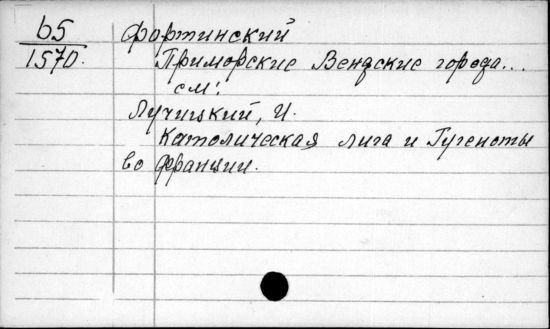 65
1570.
Фортинский
Приморские Вендские города...
см:
Лучицкий, И.
Католическая лига и Гугеноты
во Франции.